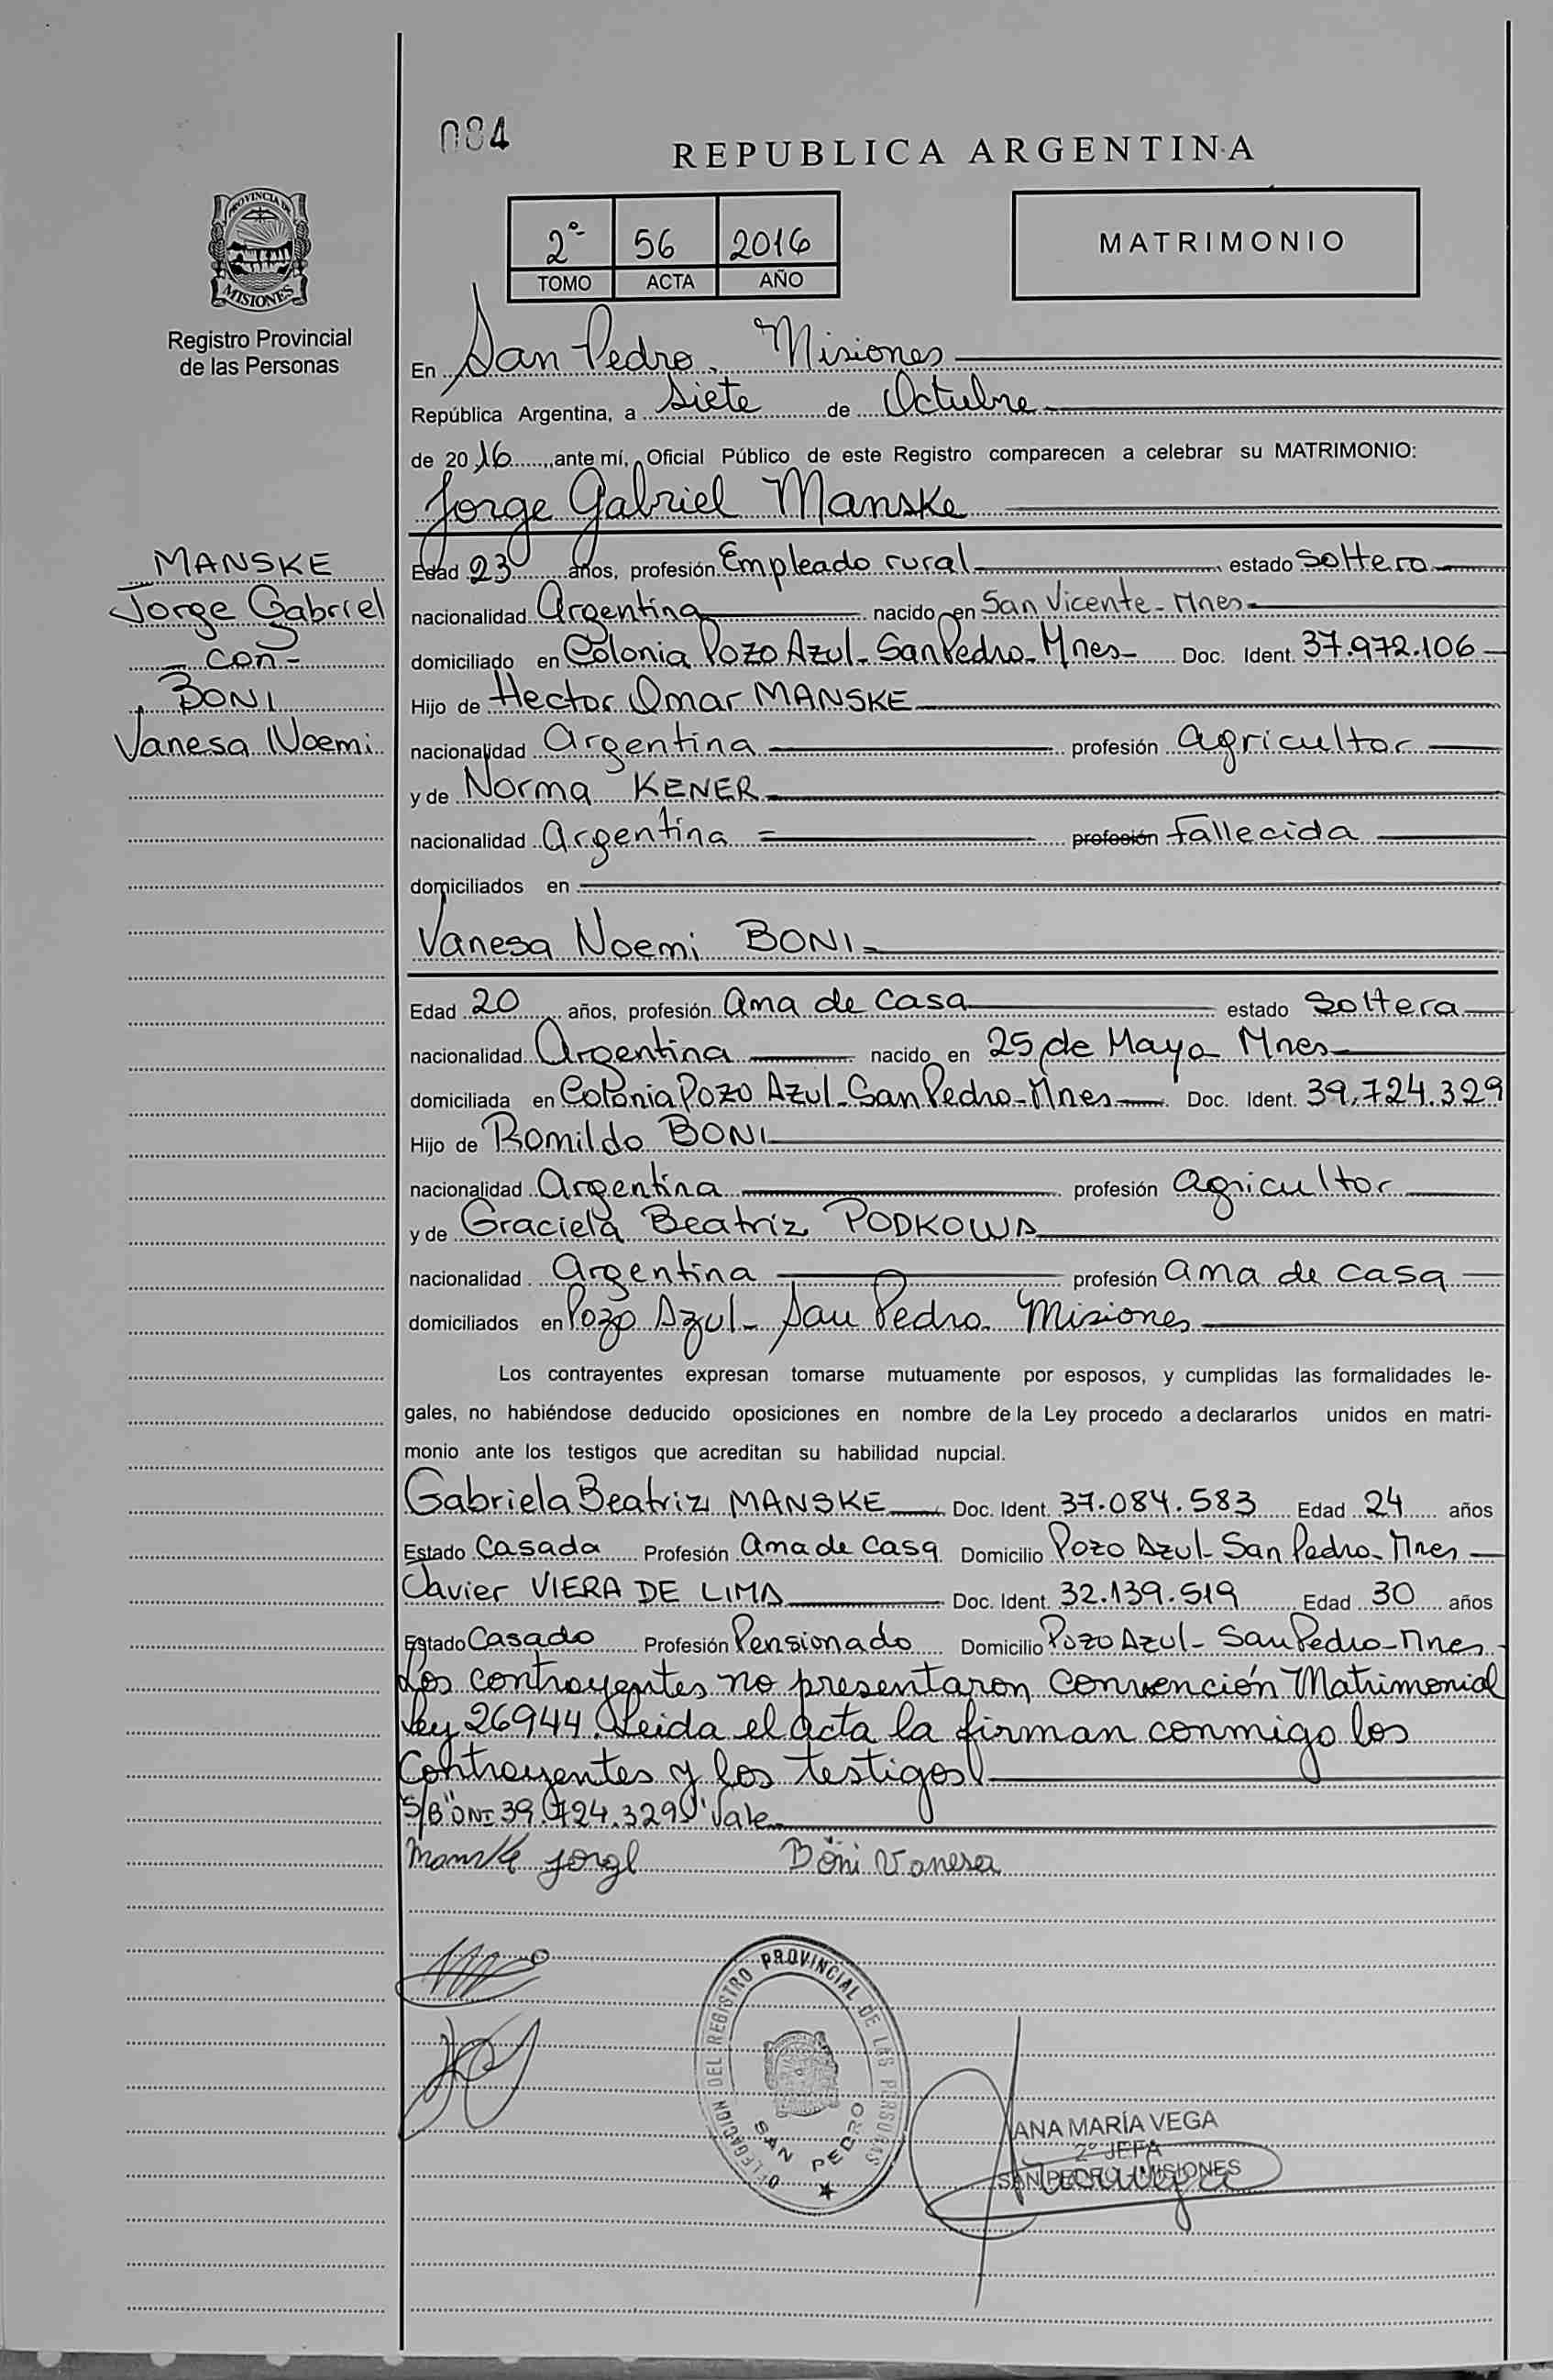 084
REPUBLICA ARGENTINA
PROVINCIA DE
MISIONES
Registro Provincial
de las Personas
2º 56 2016
TOMO ACTA AÑO
MATRIMONIO
En San Pedro, Misiones
República Argentina, a Siete de Octubre
de 2016, ante mí, Oficial Público de este Registro comparecen a celebrar su MATRIMONIO:
Jorge Gabriel Manske
MANSKE
Jorge Gabriel
- con -
BONI
Vanesa Noemi
Edad 23 años, profesión Empleado rural estado Soltero
nacionalidad Argentina nacido en San Vicente - Mnes
domiciliado en Colonia Pozo Azul - San Pedro - Mnes - Doc. Ident. 37.972.106
Hijo de Hector Omar MANSKE
nacionalidad Argentina profesión Agricultor
y de Norma KENER
nacionalidad Argentina = profesión fallecida
domiciliados en
Vanesa Noemi BONI
Edad 20 años, profesión Ama de Casa estado Soltera
nacionalidad Argentina nacido en 25 de Mayo Mnes
domiciliada en Colonia Pozo Azul - San Pedro - Mnes Doc. Ident. 39.724.329
Hijo de Romildo BONI
nacionalidad Argentina profesión Agricultor
y de Graciela Beatriz PODKOWA
nacionalidad Argentina profesión ama de casa
domiciliados en Pozo Azul - San Pedro Misiones
Los contrayentes expresan tomarse mutuamente por esposos, y cumplidas las formalidades le-
gales, no habiéndose deducido oposiciones en nombre de la Ley procedo a declararlos unidos en matri-
monio ante los testigos que acreditan su habilidad nupcial.
Gabriela Beatriz MANSKE Doc. Ident. 37.084.583 Edad 24 años
Estado Casada Profesión Ama de Casa Domicilio Pozo Azul - San Pedro - Mnes
Javier VIERA DE LIMA Doc. Ident. 32.139.519 Edad 30 años
Estado Casado Profesión Pensionado Domicilio Pozo Azul - San Pedro - Mnes
Los contrayentes no presentaron convención Matrimonial
Ley 26944. Leida el acta la firman conmigo los
Contrayentes y los testigos
S/B "DNI 39.724.329" Vale
Manske Jorge Böni Vanesa
DELEGACION DEL REGISTRO PROVINCIAL DE LAS PERSONAS
SAN PEDRO
ANA MARÍA VEGA
2º JEFA
SAN PEDRO - MISIONES